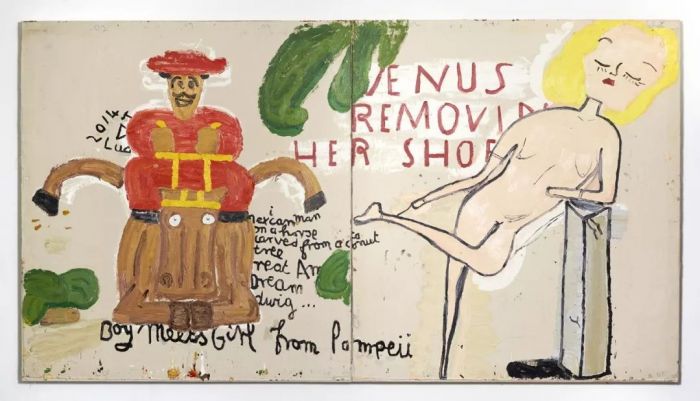 2014
VENUS
REMOVIN
HER SHOE
i
mexcan man
on a horse
carved from a coconut
tree
Great Am
Dream
dwig ...
Boy Meets Girl from Pompeii